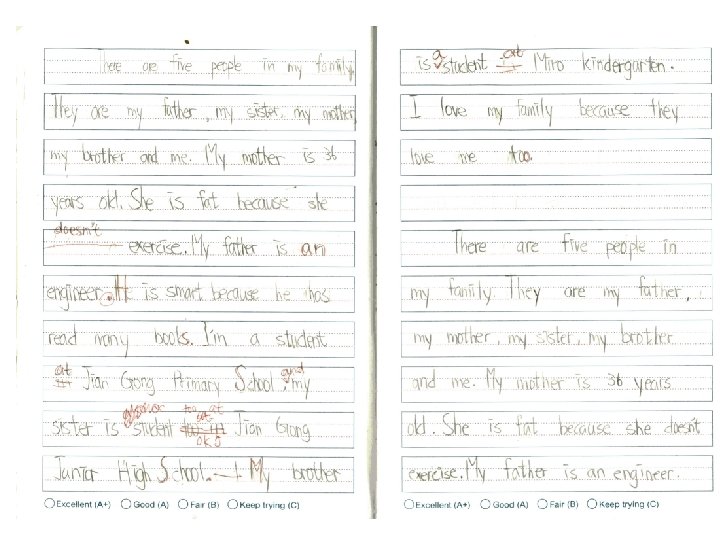 There are five people in my family.
They are my father, my sister, my mother,
my brother and me. My mother is 36
years old. She is fat because she
doesn't
exercise. My father is an
engineer. He is smart because he has
read many books. I'm a student
at Jian Gong Primary School, and my
sister is student at Jian Gong
ok
Junior High School. My brother
Excellent (A+) Good (A) Fair (B) Keep trying (C)
is a student at Miro kindergarten.
I love my family because they
love me too.
There are five people in
my family. They are my father,
my mother, my sister, my brother
and me. My mother is 36 years
old. She is fat because she doesn't
exercise. My father is an engineer.
Excellent (A+) Good (A) Fair (B) Keep trying (C)